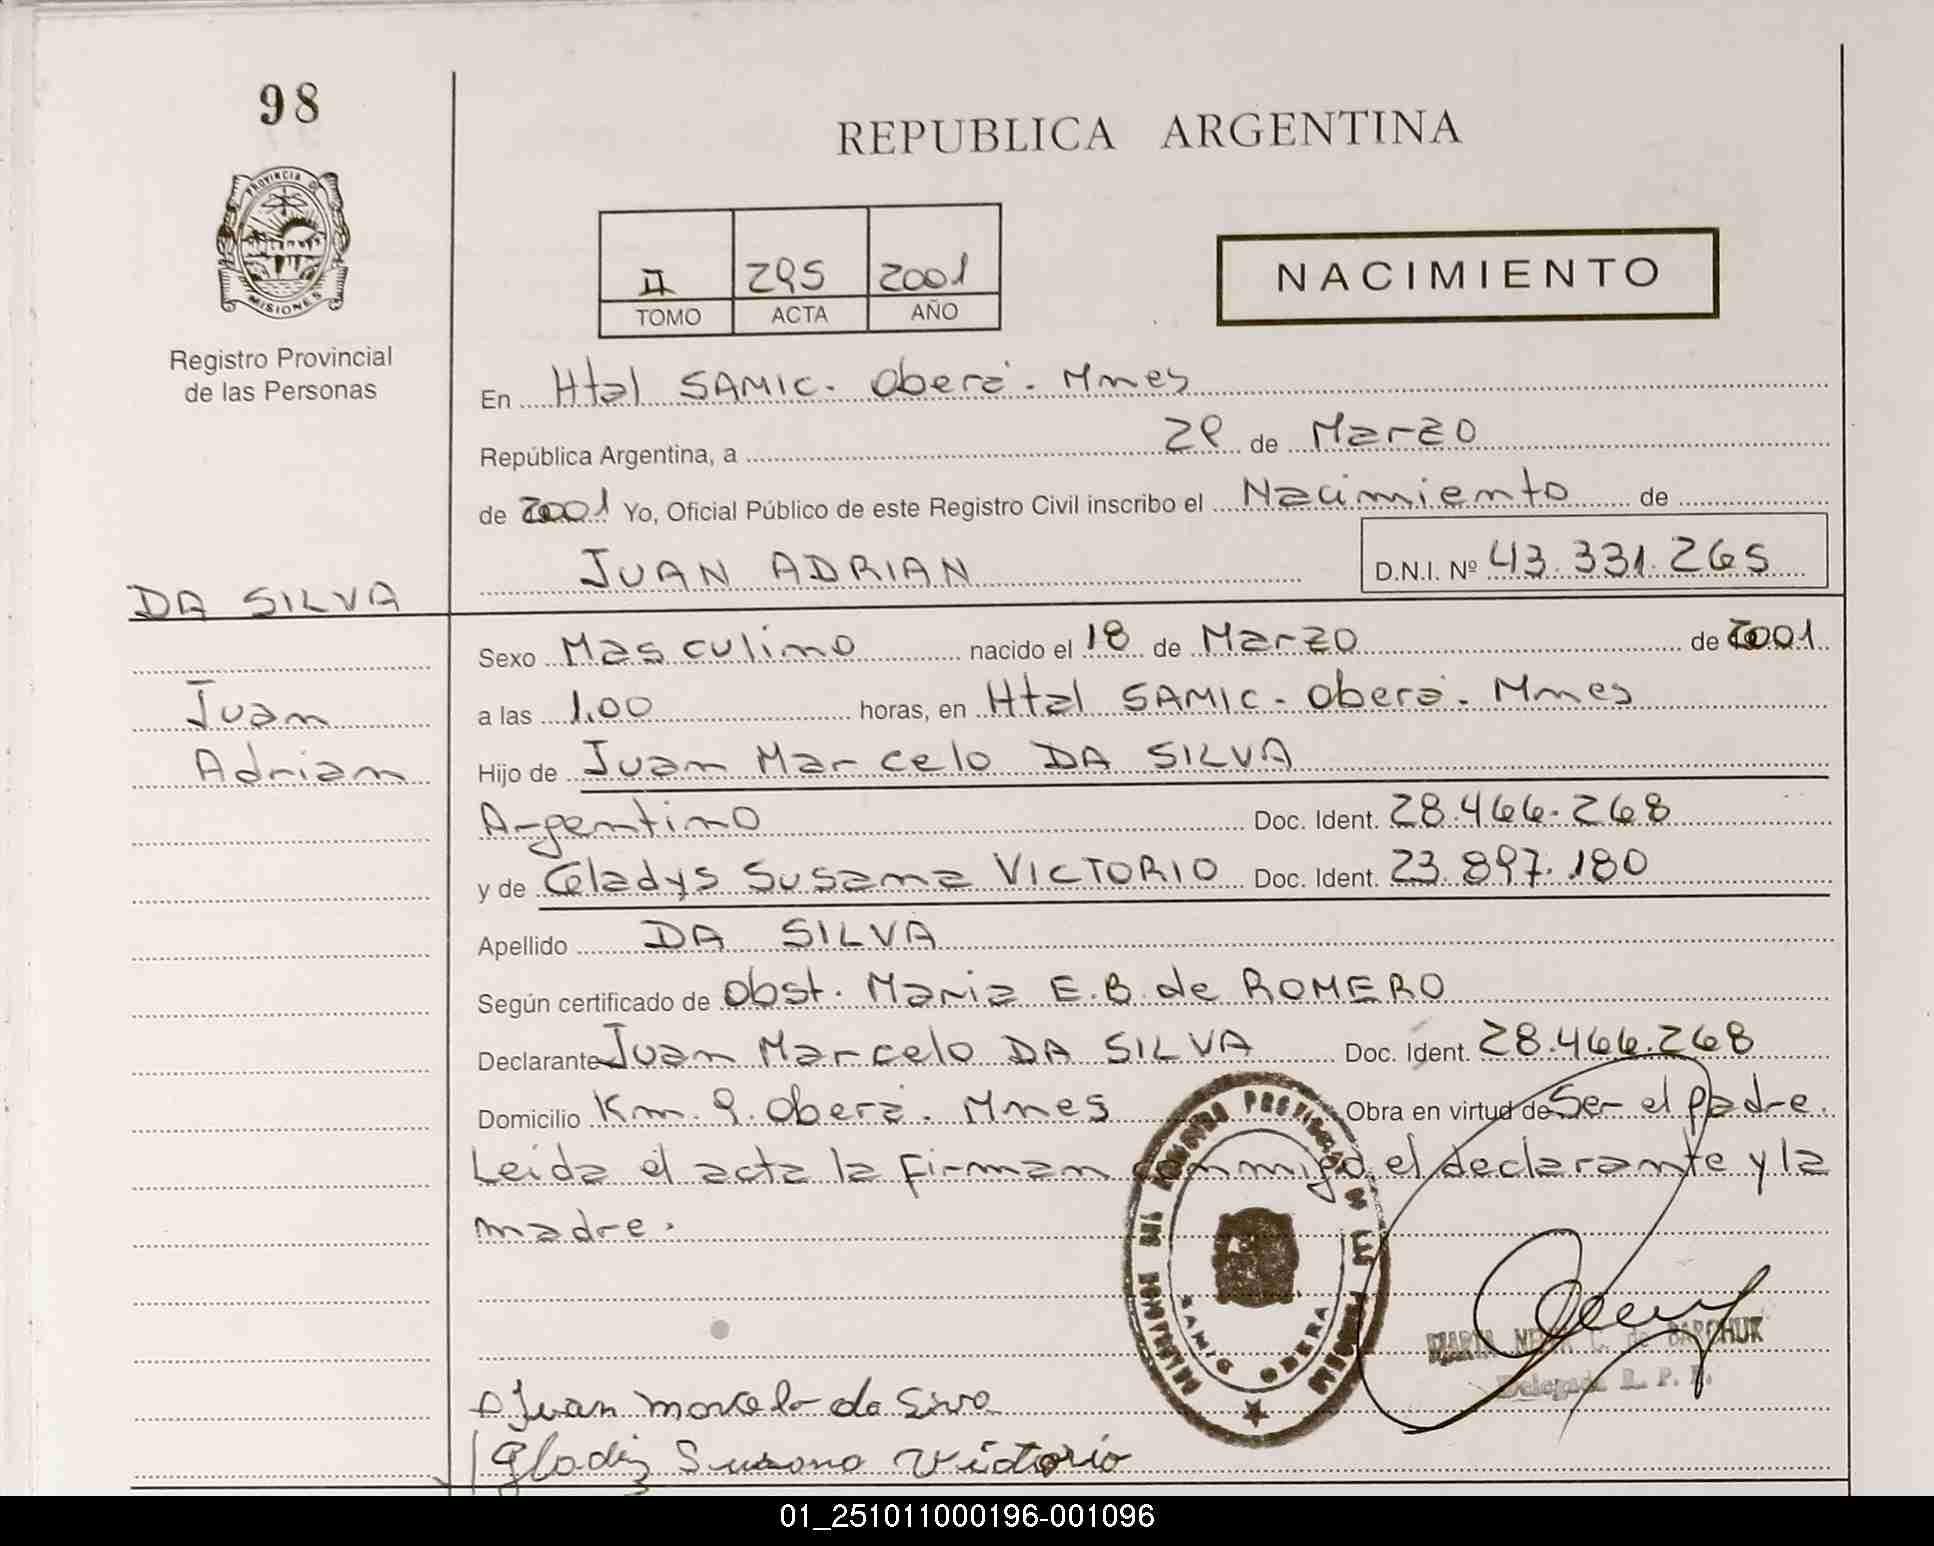 98
REPUBLICA ARGENTINA
PROVINCIA DE
MISIONES
II 295 2001
TOMO ACTA AÑO
NACIMIENTO
Registro Provincial
de las Personas
En Htal SAMIC. Oberá. Mnes
República Argentina, a 29 de Marzo
de 2001 Yo, Oficial Público de este Registro Civil inscribo el Nacimiento de
JUAN ADRIAN D.N.I. Nº 43.331.265
DA SILVA
Juan
Adrian
Sexo Masculino nacido el 18 de Marzo de 2001
a las 1.00 horas, en Htal SAMIC. Oberá. Mnes
Hijo de Juan Marcelo DA SILVA
Argentino Doc. Ident. 28.466.268
y de Gladys Susana VICTORIO Doc. Ident. 23.897.180
Apellido DA SILVA
Según certificado de Obst. Maria E.B. de ROMERO
Declarante Juan Marcelo DA SILVA Doc. Ident. 28.466.268
Domicilio Km. 9. Oberá. Mnes Obra en virtud de Ser el padre.
Leida el acta la firman conmigo, el declarante y la
madre.
REGISTRO PROVINCIAL DE LAS PERSONAS
SAMIC OBERA
MARIA C. de BARCHUK
Delegada R. P. P.
Juan Marcelo da Silva
Gladiz Susana Victorio
01_251011000196-001096